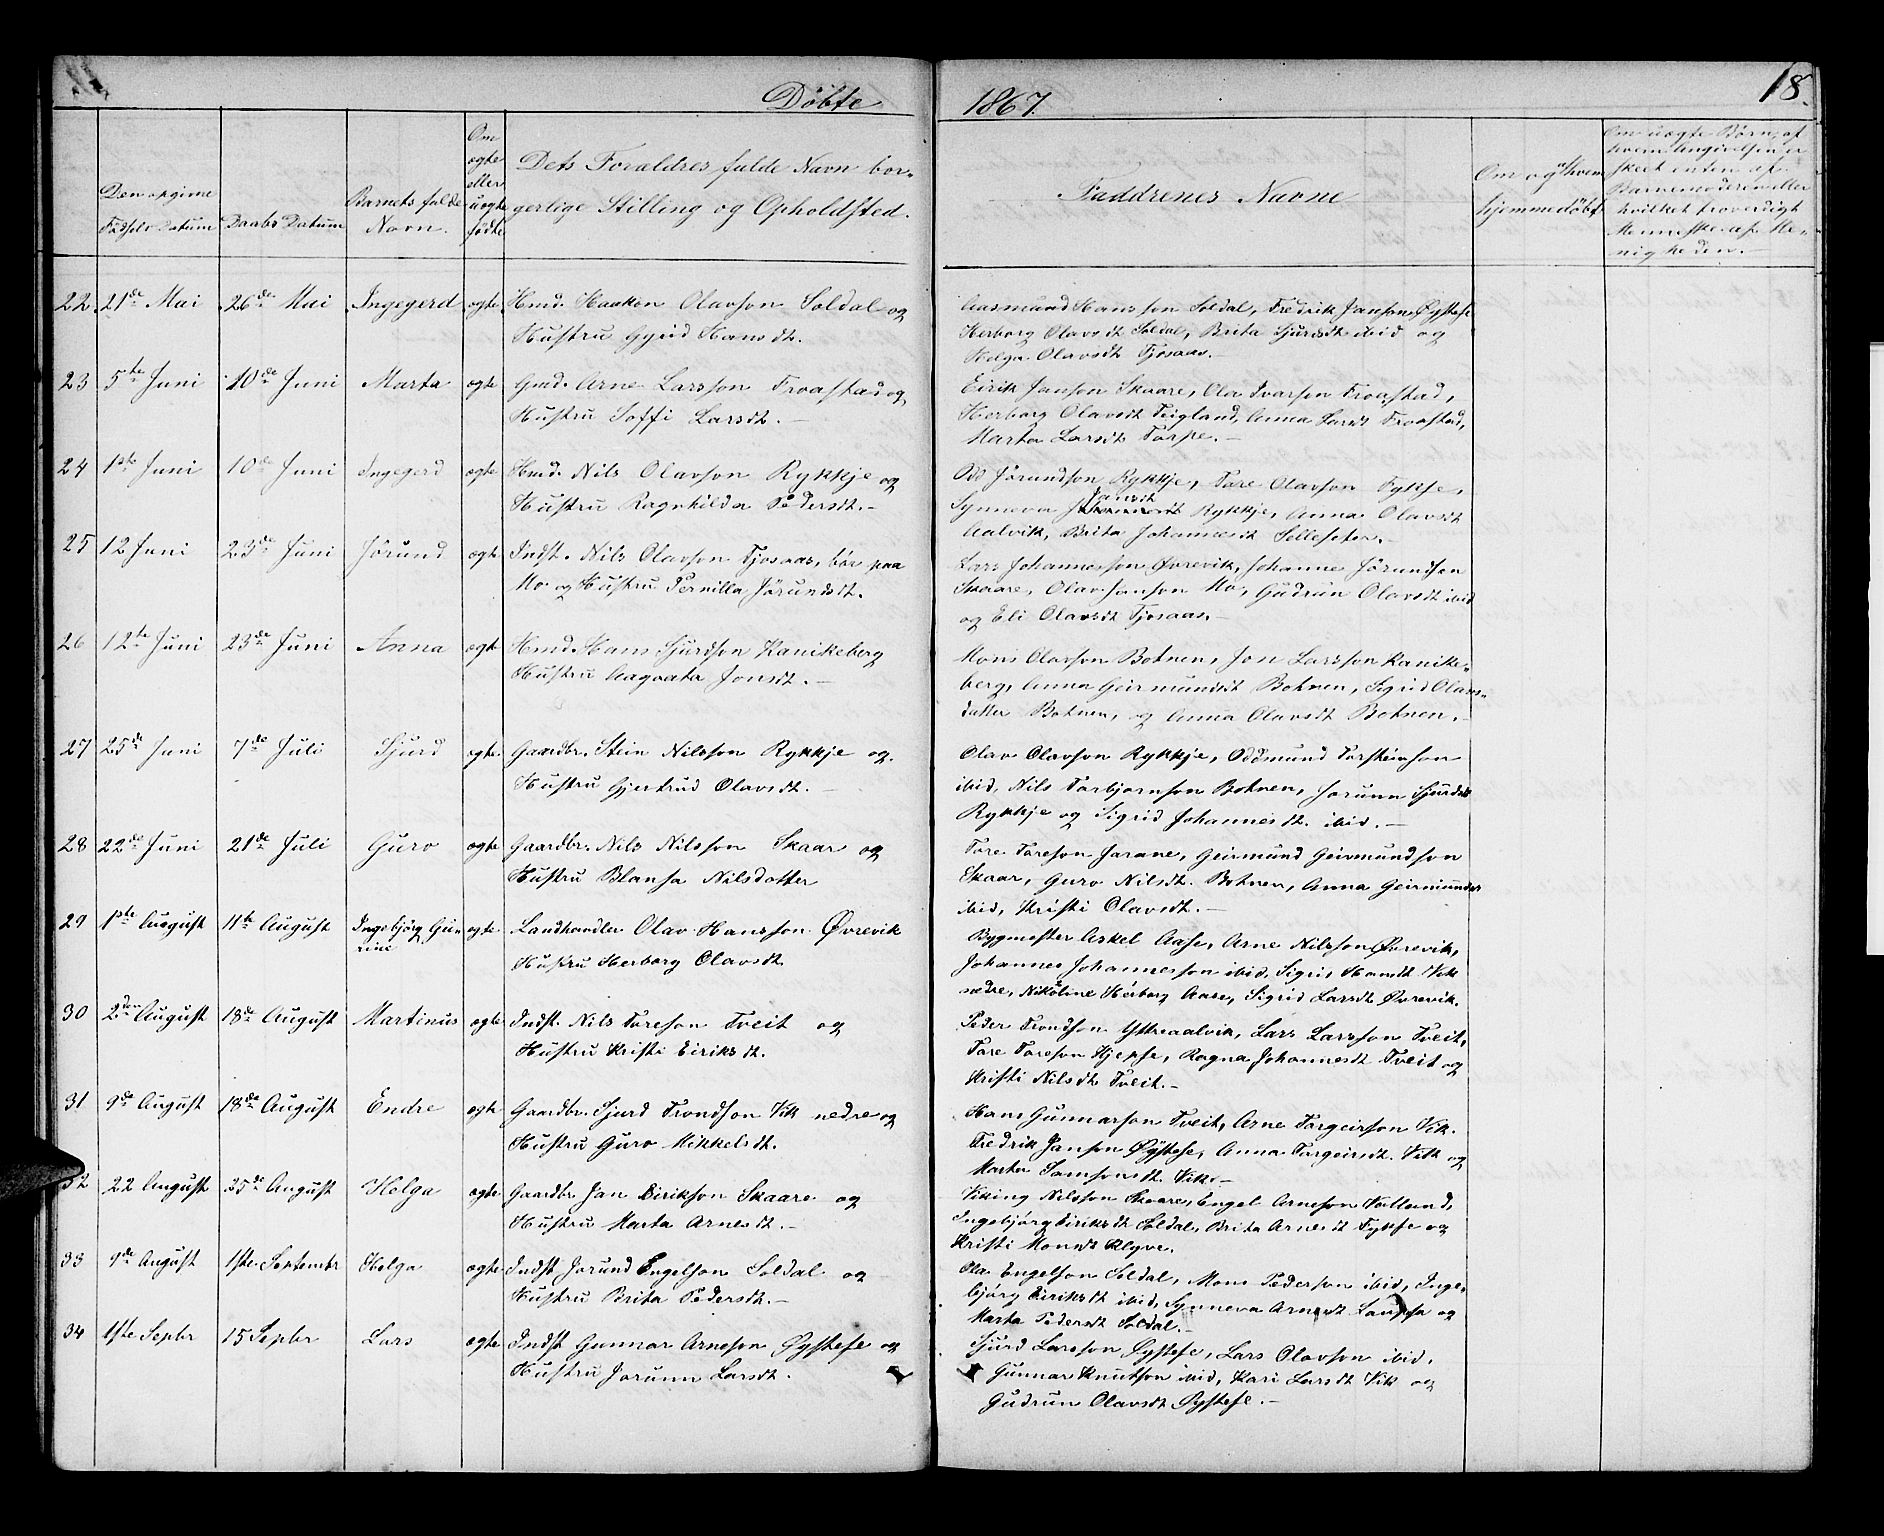 Döbte
1867.
18.
Den opgivne
Födsels Datum
Daabs Datum
Barnets fulde
Navn.
Om
ogte
eller
uogte
födte
Dets Forældres fulde Navn bor-
gerlige Stilling og Opholdsted.
Faddrenes Navne
Om og af hvem
hjemmedöbt
Om uogte Børn, af
hvem Angivelsen er
skeet enten af
Barnemoderen eller
hvilket troverdigt
Menneske af Me-
nigheden.
22 21de Mai 26de Mai Ingegerd ogte Hmd. Haakon Olavson Soldal og
Hustru Gyrid Hansdt.
Aasmund Hansson Soldal, Fredrik Janson Øystese
Herborg Olavsdt Soldal, Brita Sjursdt ibid og
Helga Olavsdt Tjosaas.
23 5te Juni 10de Juni Marta ogte Gmd. Arne Larsson Froastad og
Hustru Soffi Larsdt.
Eirik Janson Skaare, Ola Ivarson Froastad,
Herborg Olavsdt Teigland, Anna Larsdt Froastad,
Marta Larsdt Torpe.
24 1ste Juni 10de Juni Ingegerd ogte Hmd. Nils Olavson Rykkje og
Hustru Ragnhilda Pedersdt.
Odd Jörundson Rykkje, Tore Olavson Fykse,
Synneva Jansdt Rykkje, Anna Olavsdt
Aalvik, Brita Johannesdt Selleseter.
25 12 Juni 23de Juni Jörund ogte Indst. Nils Olavson Tjosaas, bor paa
Mo og Hustru Pernilla Jörundsdt.
Lars Johannesson Øvrevik, Johanne Jörundson
Skaare, Olav Janson Mo, Gudrun Olavsdt ibid
og Eli Olavsdt Tjosaas.
26 12te Juni 23de Juni Anna ogte Hmd. Hans Sjurdson Kanikeberg
Hustru Aagaata Jonsdt.
Mons Olavson Botnen, Jon Larsson Kanike-
berg, Anna Geirmundsdt Botnen, Sigrid Olavs-
datter Botnen, og Anna Olavsdt Botnen.
27 25de Juni 7de Juli Sjurd ogte Gaardbr. Stein Nilsson Rykkje og
Hustru Gjertrud Olavsdt.
Olav Olavson Rykkje, Oddmund Torsteinson
ibid, Nils Torbjornson Botnen, Jorunn Sjurdsdt
Rykkje og Sigrid Johannesdt. ibid.
28 22de Juni 21de Juli Guro ogte Gaardbr. Nils Nilsson Skaar og
Hustru Blansa Nilsdotter
Tore Toreson Jarane, Geirmund Geirmundson
Skaar, Guro Nilsdt. Botnen, Anna Geirmundsdt
ibid, Kristi Olavsdt.
29 1ste August 11te August Ingebjörg Gu-
rine ogte Landhandler Olav Hansson Øvrevik
Hustru Herborg Olavsdt
Bygmester Askel Aase, Arne Nilsson Øvrevik,
Johannes Johannesson ibid, Sigri Hansdt Vik
nedre, Nikoline Herborg Aase, Sigrid Larsdt Øvrevik.
30 2den August 18de August Martinus ogte Indst. Nils Toreson Tveit og
Hustru Kristi Eiriksdt.
Peder Trondson Ytreaalvik, Lars Larsson Tveit,
Tore Toreson Kjepse, Ragna Johannesdt Tveit og
Kristi Nilsdt Tveit.
31 9de August 18de August Endre ogte Gaardbr. Sjurd Trondson Vik nedre og
Hustru Guro Mikkelsdt.
Hans Gunnarson Tveit, Arne Torgeirson Vik.
Fredrik Janson Øystese, Anna Torgeirsdt. Vik og
Marta Samsonsdt Vik.
32 22 August 25de August Helga ogte Gaardbr Jan Eirikson Skaare og
Hustru Marta Arnesdt.
Viking Nilsson Skaare, Engel Arneson Valland,
Ingebjörg Eiriksdt Soldal, Brita Arnesdt Fykse og
Kristi Monsdt Klyve.
33 9de August 1ste Septembr Helga ogte Indst Jorund Engelson Soldal og
Hustru Brita Pedersdt.
Ola Engelson Soldal, Mons Pederson ibid, Inge-
björg Eiriksdt ibid, Synneva Arnesdt Laupsa og
Marta Pedersdt Soldal.
34 1ste Sepbr 15 Sepbr Lars ogte Indst Gunnar Arneson Øystese og
Hustru Jorunn Larsdt.
Sjurd Larsson Øystese, Lars Olavson ibid,
Gunnar Knutson ibid, Kari Larsdt Vik og
Gudrun Olavsdt Øystese.